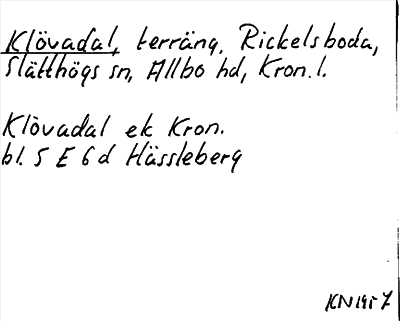 Klövadal, terräng, Rickelsboda,
Slätthögs sn, Allbo hd, Kron. l.
Klövadal ek Kron.
bl. 5 E 6 d Hässleberg
KN 1957